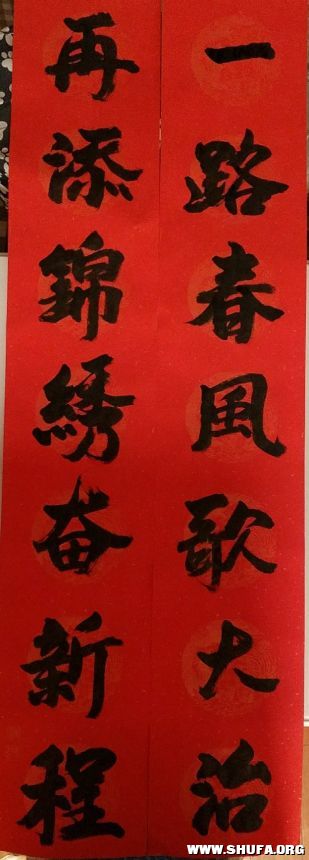 一路春風歌大治
再添錦綉奋新程
WWW.SHUFA.ORG